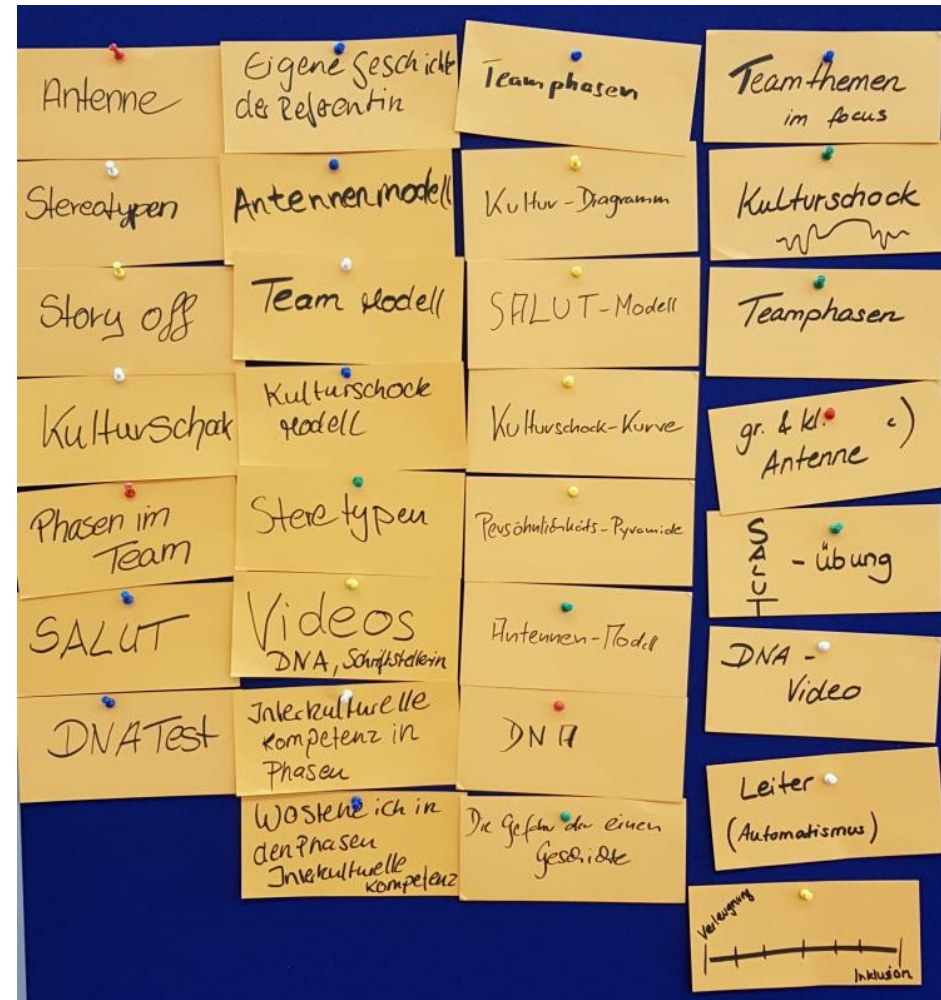 Antenne
Stereotypen
Story off
Kulturschock
Phasen im
Team
SALUT
DNA Test
Eigene Geschichte
der Referentin
Antennenmodell
Team Modell
Kulturschock
Modell
Steretypen
Videos
DNA, Schriftstellerin
Interkulturelle
Kompetenz in
Phasen
Wo stehe ich in
den Phasen
Interkulturelle
Kompetenz
Teamphasen
Kultur-Diagramm
SALUT-Modell
Kulturschock-Kurve
Persönlichkeits-Pyramide
Antennen-Modell
DNA
Die Gefahr der einen
Geschichte
Teamthemen
im focus
Kulturschock
Teamphasen
gr. & kl.
Antenne
SALUT - übung
DNA -
Video
Leiter
(Automatismus)
Verleugnung
Inklusion